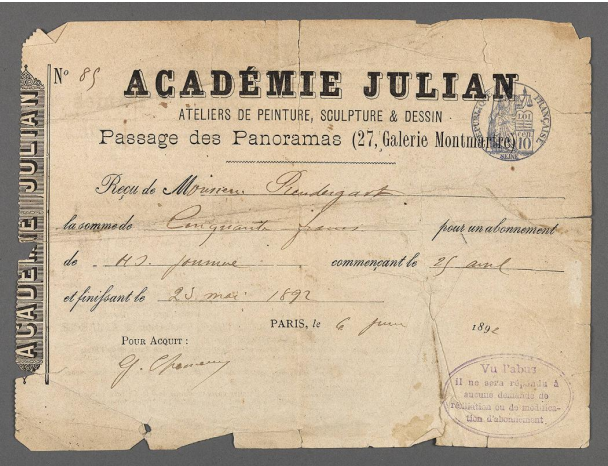 ACADÉMIE JULIAN
Nº 85
ACADÉMIE JULIAN
ATELIERS DE PEINTURE, SCULPTURE & DESSIN
Passage des Panoramas (27, Galerie Montmartre)
RÉPUBLIQUE FRANÇAISE
10
Reçu de Monsieur Prendergast
la somme de Cinquante francs pour un abonnement
de journée commençant le 25 avril
et finissant le 25 mai 1892
PARIS, le 6 juin 1892
POUR ACQUIT :
G.
Vu l'abus
il ne sera répondu à
aucune demande de
résiliation ou de modifica-
tion d'abonnement.